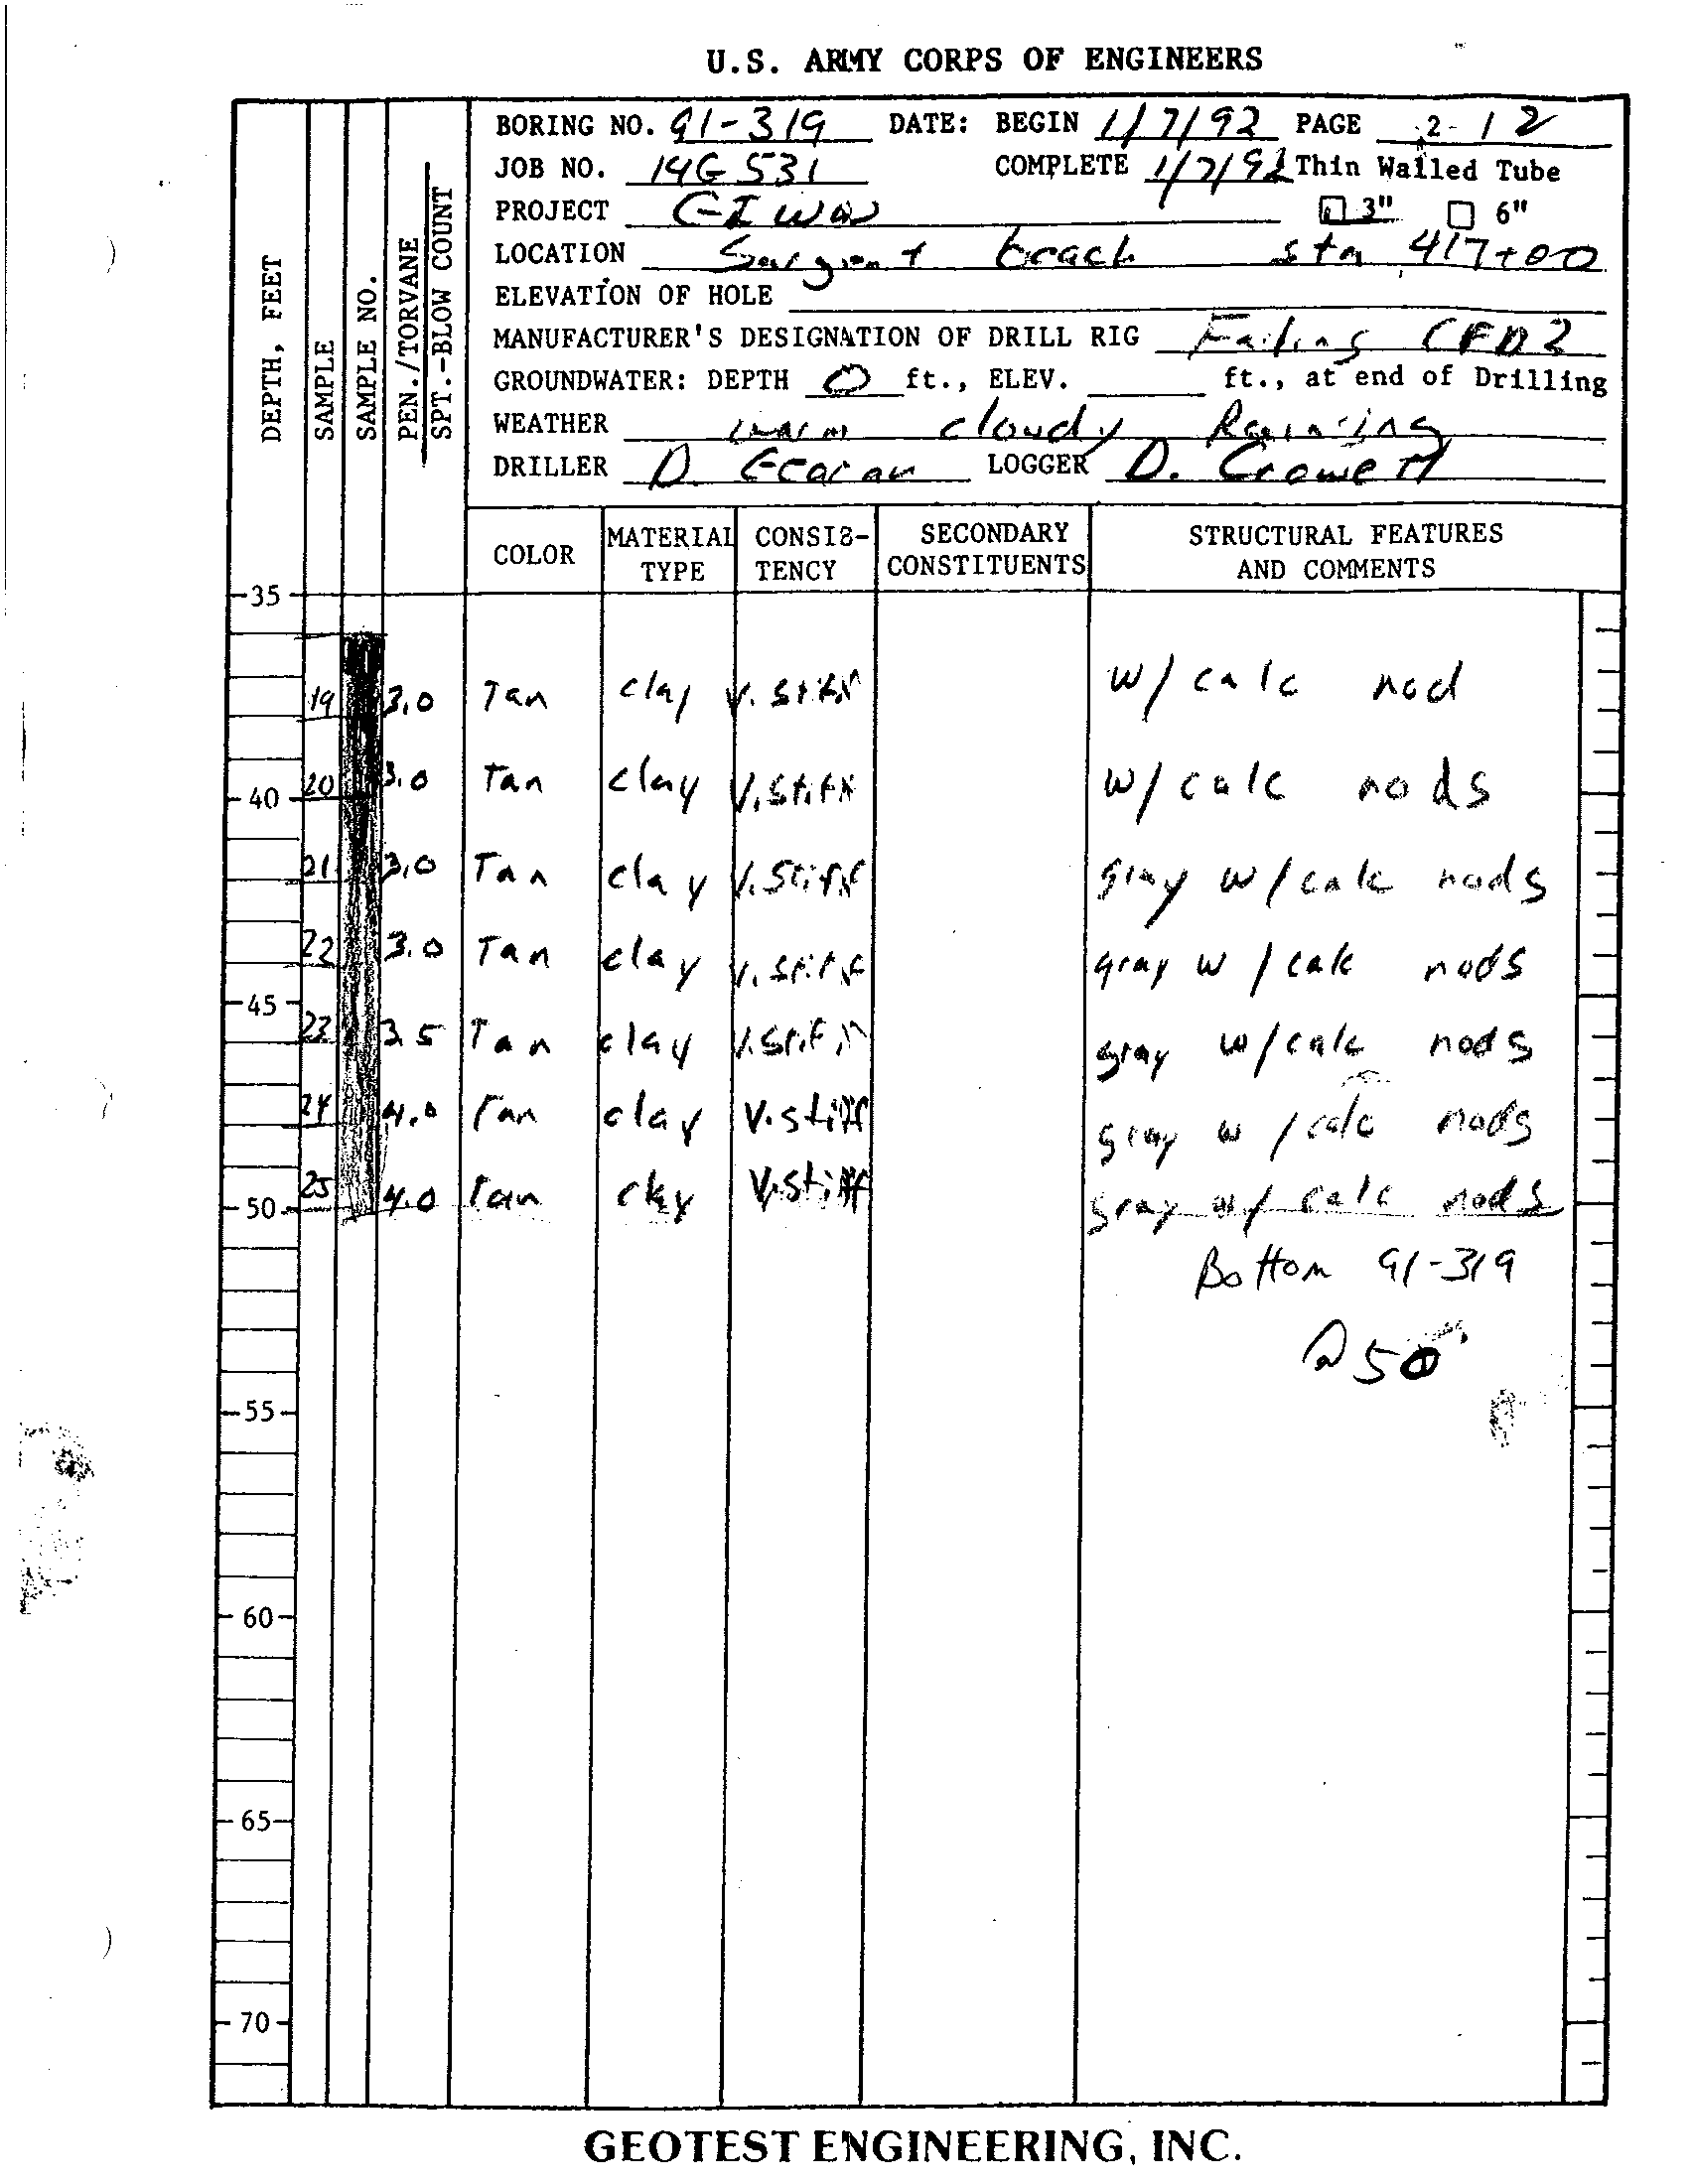 U.S. ARMY CORPS OF ENGINEERS
BORING NO. 91-319 DATE: BEGIN 1/7/92 PAGE 2-12
JOB NO. 14G531 COMPLETE 1/7/92 Thin Walled Tube
PROJECT GIWW 3" 6"
LOCATION Sargent beach sta 417+00
ELEVATION OF HOLE
MANUFACTURER'S DESIGNATION OF DRILL RIG Failing
GROUNDWATER: DEPTH 0 ft., ELEV. ft., at end of Drilling
WEATHER warm cloudy Raining
DRILLER D. LOGGER D. Crowell
DEPTH, FEET
SAMPLE
SAMPLE NO.
PEN./TORVANE
SPT.-BLOW COUNT
COLOR MATERIAL TYPE CONSIS-TENCY SECONDARY CONSTITUENTS STRUCTURAL FEATURES AND COMMENTS
35
19 3.0 Tan clay V. stiff w/ calc nod
20 3.0 Tan clay V. stiff w/ calc nods
40
21 3.0 Tan clay V. stiff gray w/ calc nods
22 3.0 Tan clay V. stiff gray w/ calc nods
45
23 3.5 Tan clay V. stiff gray w/ calc nods
24 4.0 Tan clay V. stiff gray w/ calc nods
25 4.0 Tan clay V. stiff gray w/ calc nods
50
Bottom 91-319
@ 50'
55
60
65
70
GEOTEST ENGINEERING, INC.